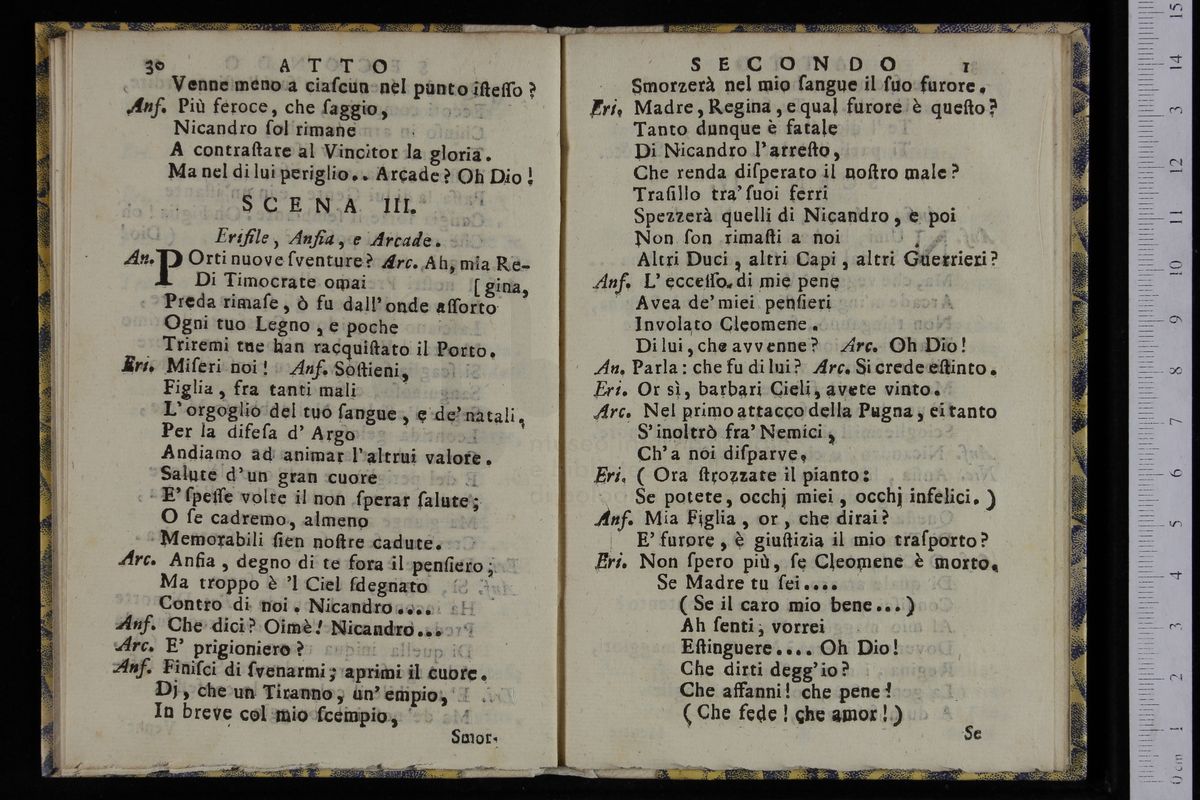 30 ATTO
Venne meno a ciaſcun nel punto iſteſſo?
Anf. Più feroce, che ſaggio,
Nicandro ſol rimane
A contraſtare al Vincitor la gloria.
Ma nel di lui periglio.. Arcade? Oh Dio!
SCENA III.
Erifile, Anfia, e Arcade.
An. POrti nuove ſventure? Arc. Ah, mia Re-
Di Timocrate omai [gina,
Preda rimaſe, ò fu dall'onde aſſorto
Ogni tuo Legno, e poche
Triremi tue han racquiſtato il Porto.
Eri. Miſeri noi! Anf. Soſtieni,
Figlia, fra tanti mali
L'orgoglio del tuo ſangue, e de'natali,
Per la difeſa d' Argo
Andiamo ad animar l'altrui valore.
Salute d'un gran cuore
E' ſpeſſe volte il non ſperar ſalute;
O ſe cadremo, almeno
Memorabili ſien noſtre cadute.
Arc. Anfia, degno di te fora il penſiero;
Ma troppo è 'l Ciel ſdegnato
Contro di noi. Nicandro....
Anf. Che dici? Oimè! Nicandro...
Arc. E' prigioniero?
Anf. Finiſci di ſvenarmi; aprimi il cuore.
Dj, che un Tiranno, un' empio,
In breve col mio ſcempio,
Smor-
SECONDO 1
Smorzerà nel mio ſangue il ſuo furore.
Eri. Madre, Regina, e qual furore è queſto?
Tanto dunque è fatale
Di Nicandro l'arreſto,
Che renda diſperato il noſtro male?
Traſillo tra' ſuoi ferri
Spezzerà quelli di Nicandro, e poi
Non ſon rimaſti a noi
Altri Duci, altri Capi, altri Guerrieri?
Anf. L' ecceſſo di mie pene
Avea de' miei penſieri
Involato Cleomene.
Di lui, che avvenne? Arc. Oh Dio!
An. Parla: che fu di lui? Arc. Si crede eſtinto.
Eri. Or sì, barbari Cieli, avete vinto.
Arc. Nel primo attacco della Pugna, ei tanto
S'inoltrò fra' Nemici,
Ch'a noi diſparve.
Eri. (Ora ſtrozzate il pianto:
Se potete, occhj miei, occhj infelici.)
Anf. Mia Figlia, or, che dirai?
E' furore, è giuſtizia il mio traſporto?
Eri. Non ſpero più, ſe Cleomene è morto.
Se Madre tu ſei....
(Se il caro mio bene...)
Ah ſenti, vorrei
Eſtinguere.... Oh Dio!
Che dirti degg'io?
Che affanni! che pene!
(Che fede! che amor!)
Se